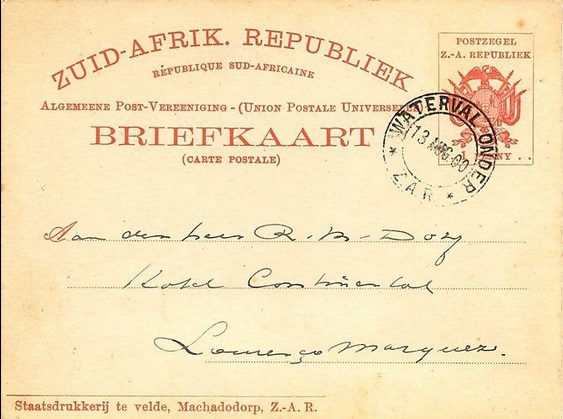 ZUID-AFRIK. REPUBLIEK
RÉPUBLIQUE SUD-AFRICAINE
ALGEMEENE POST-VEREENIGING - (UNION POSTALE UNIVERSELLE)
BRIEFKAART
(CARTE POSTALE)
POSTZEGEL
Z.-A. REPUBLIEK
1 PENNY
WATERVAL-ONDER
13 AUG. 00
* Z A R *
Aan den heer R. M. Dorf
Hotel Continental
Lourenço Marquez.
Staatsdrukkerij te velde, Machadodorp, Z.-A. R.